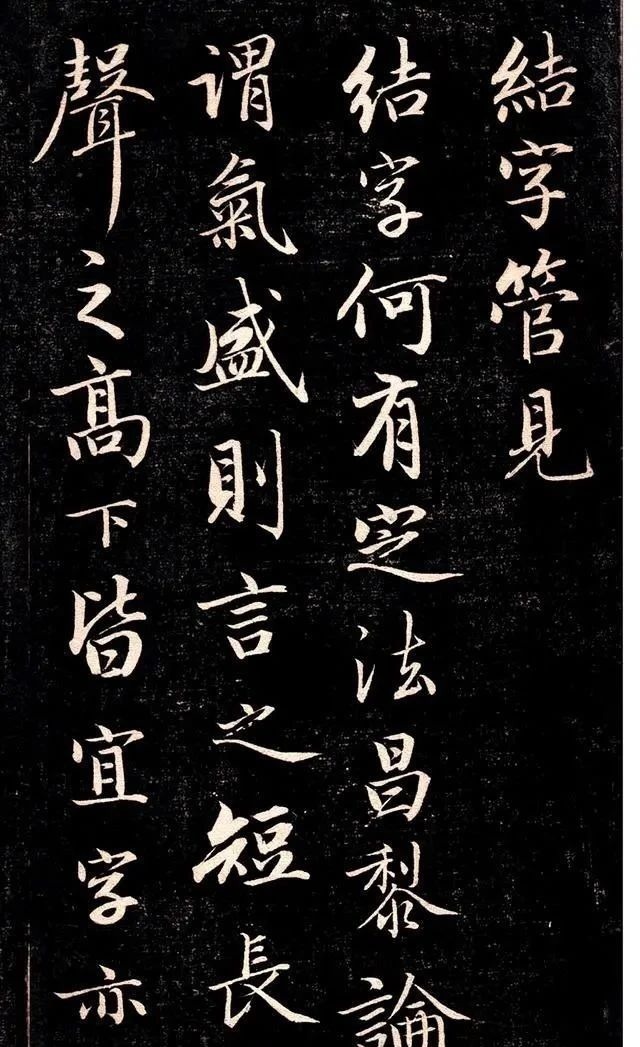 結字管見
结字何有定法昌黎論
谓氣盛則言之短長
聲之髙下皆宜字亦